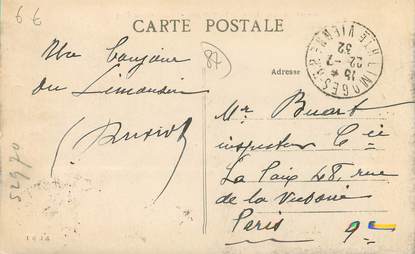 6€
CARTE POSTALE
87
Un bonjour
du Limousin
Adresse
LIMOGES GARE
HTE VIENNE
15 *
22-7
32
Mr Buart
inspecteur Cie
La Paix 28, rue
de la Victoire
Paris 9e
52970